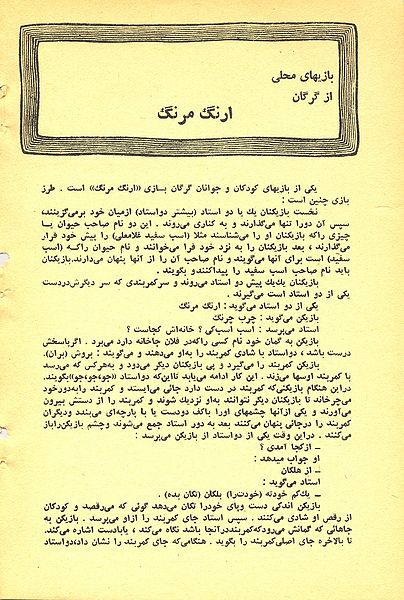 بازیهای محلی
از گرگان
ارنگ مرنگ
یکی از بازیهای کودکان و جوانان گرگان بازی «ارنگ مرنگ» است . طرز
بازی چنین است :
نخست بازیکنان یك یا دو استاد (بیشتر دواستاد) ازمیان خود برمی‌گزینند،
سپس آن دورا تنها می‌گذارند و به کناری می‌روند . این دو نام صاحب حیوان یـا
چیزی راکه بازیکنان او را می‌شناسند مثلا (اسب سفید غلامعلی) را پیش خود قرار
می‌گذارند ، بعد بازیکنان را به نزد خود فرا می‌خوانند و نام حیوان راکـه (اسب
سفید) است برای آنها می‌گویند و نام صاحب آن را از آنها پنهان می‌دارند.بازیکنان
باید نام صاحب اسب سفید را پیداکنندو بگویند .
بازیکنان یك‌یك پیش دو استاد می‌روند و سرکمربندی که سر دیگرش‌دردست
یکی از دو استاد است می‌گیرند .
یکی از دو استاد می‌گوید : ارنگ مرنگ
بازیکن می‌گوید : چرب چرنگ
استاد می‌پرسد : اسب اسب‌کی ؟ خانه‌اش کجاست ؟
بازیکن به گمان خود نام کسی راکه‌در فلان جاخانه دارد می‌برد . اگرپاسخش
درست باشد ، دواستاد با شادی کمربند را به‌او می‌دهند و می‌گویند : بروش (بران).
بازیکن کمربند را می‌گیرد و پی بازیکنان دیگر می‌دود و به‌هرکس که می‌رسد
با کمربند اوسها می‌زند. این کار ادامه می‌یابد تااین‌که دواستاد «(جو،جو،جو)»بگویند.
دراین هنگام بازیکنی‌که کمربند در دست دارد جائی می‌ایستد و کمربند رابه‌دورخود
می‌چرخاند تا بازیکنان دیگر نتوانند به‌او نزدیك شوند و کمربند را از دستش بیرون
می‌آورند و یکی ازآنها چشمهای اورا باکف دودست یا با پارچه‌ای می‌بندد ودیگران
کمربند را درجائی پنهان می‌کنند بعد به دور استاد جمع می‌شوند وچشم بازیکن‌راباز
می‌کنند . دراین وقت یکی از دواستاد از بازیکن می‌پرسد :
ـ ازکجا آمدی ؟
او جواب میدهد :
ـ از هلکان
استاد می‌گوید :
ـ یك‌کم خودته (خودت‌را) بلکان (تکان بده) .
بازیکن اندکی دست وپای خودرا تکان می‌دهد گوئی که می‌رقصد و کودکان
از رقص او شادی می‌کنند . سپس استاد جای کمربند را ازاو می‌پرسد . بازیکن به
جاهائی که گمانش می‌رودکه‌کمربنددرآنجا باشد نگاه می‌کند ، یابادست اشاره می‌کند.
تا بالاخره جای اصلی‌کمربند را بگوید . هنگامی‌که جای کمربند را نشان داد،دواستاد